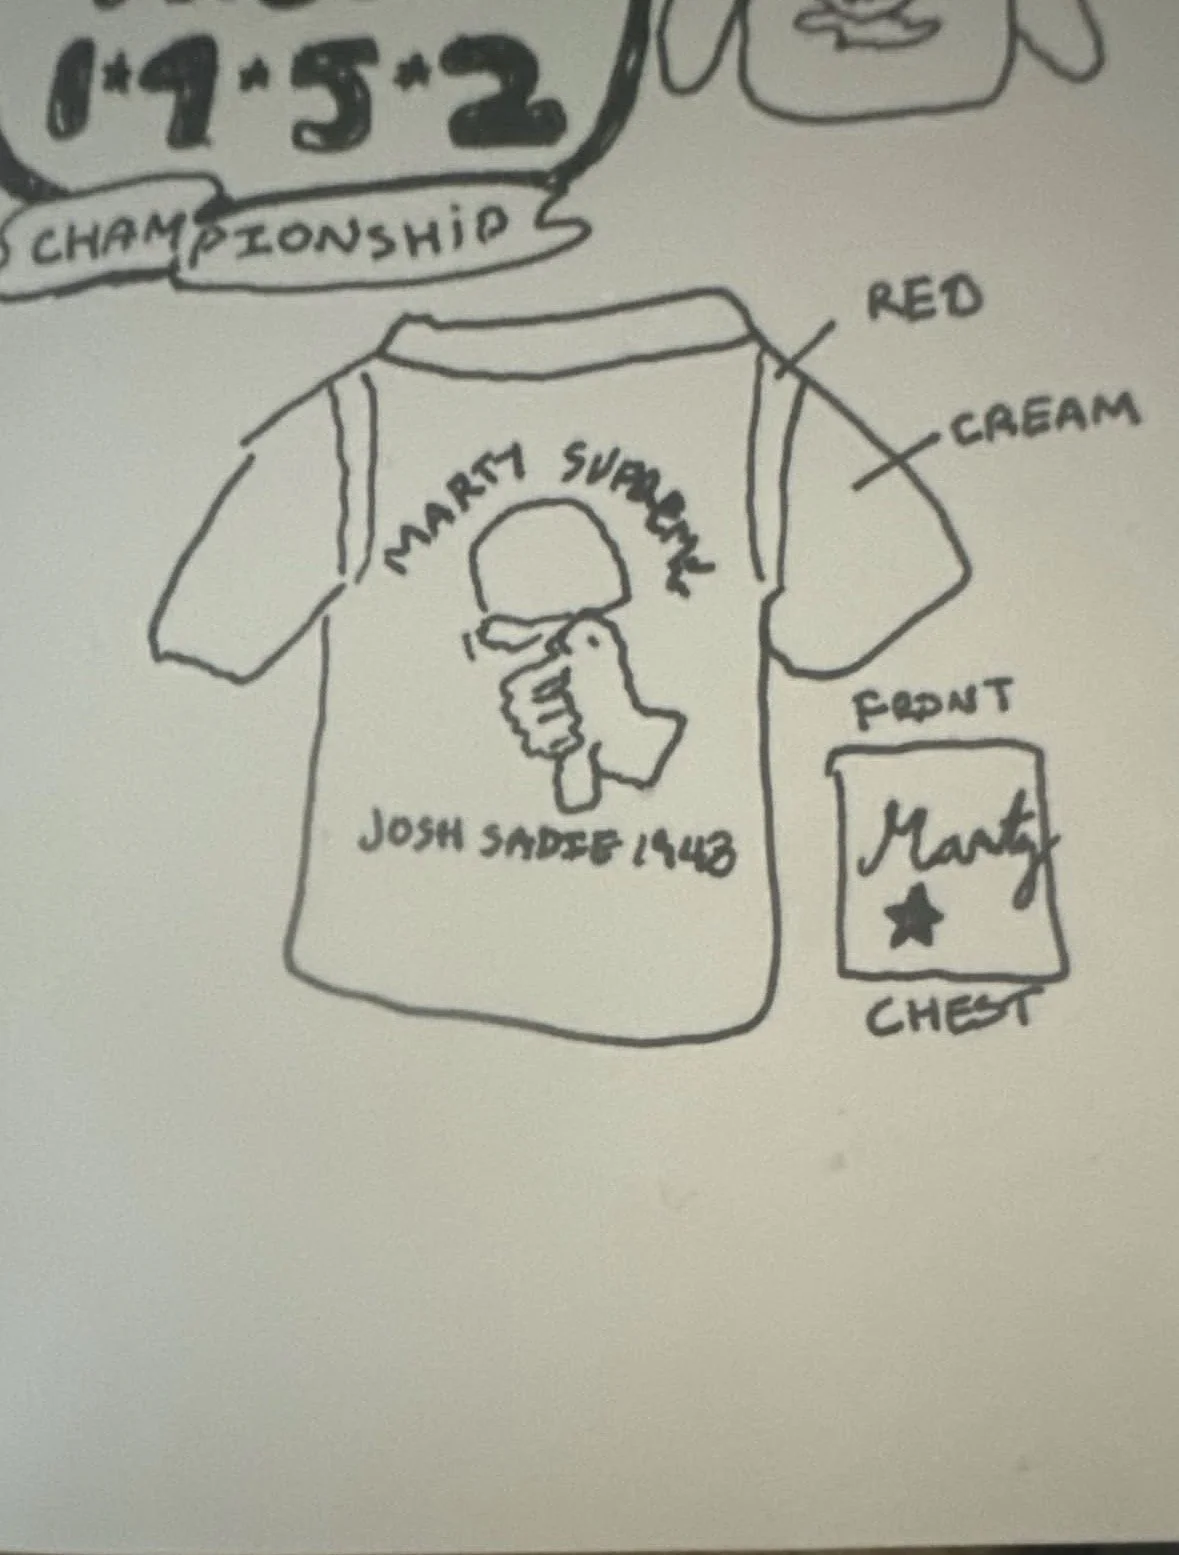 1★9★5★2
CHAMPIONSHIP
RED
CREAM
MARTY SUPREME
FRONT
Marty
JOSH SADIE 1943
CHEST